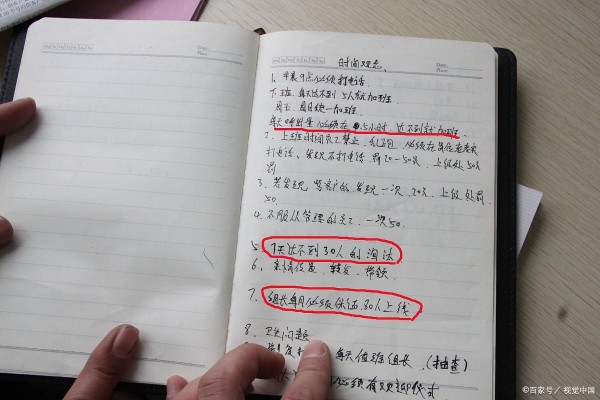 时间观念
Date:
Place:
1、早晨9点必须打电话、
下班、每天达不到5人就加班、
周五、周日统一加班、
每天呼出量必须在 5小时、达不到就加班、
2、上班时间员工禁止 乱跑 必须在
打电话、发现不打电话、罚20—50一次、上级处50天
罚
3、若发现 骂客户的、发现一次、20天、上级处罚
50、
4、不服从管理的员工、一次50、
5、7天达不到30人的淘汰
6、
7、组长每月必须保证30人上线
8、卫生问题
每天值班组长、（抽查）
必须有
©百家号／视觉中国